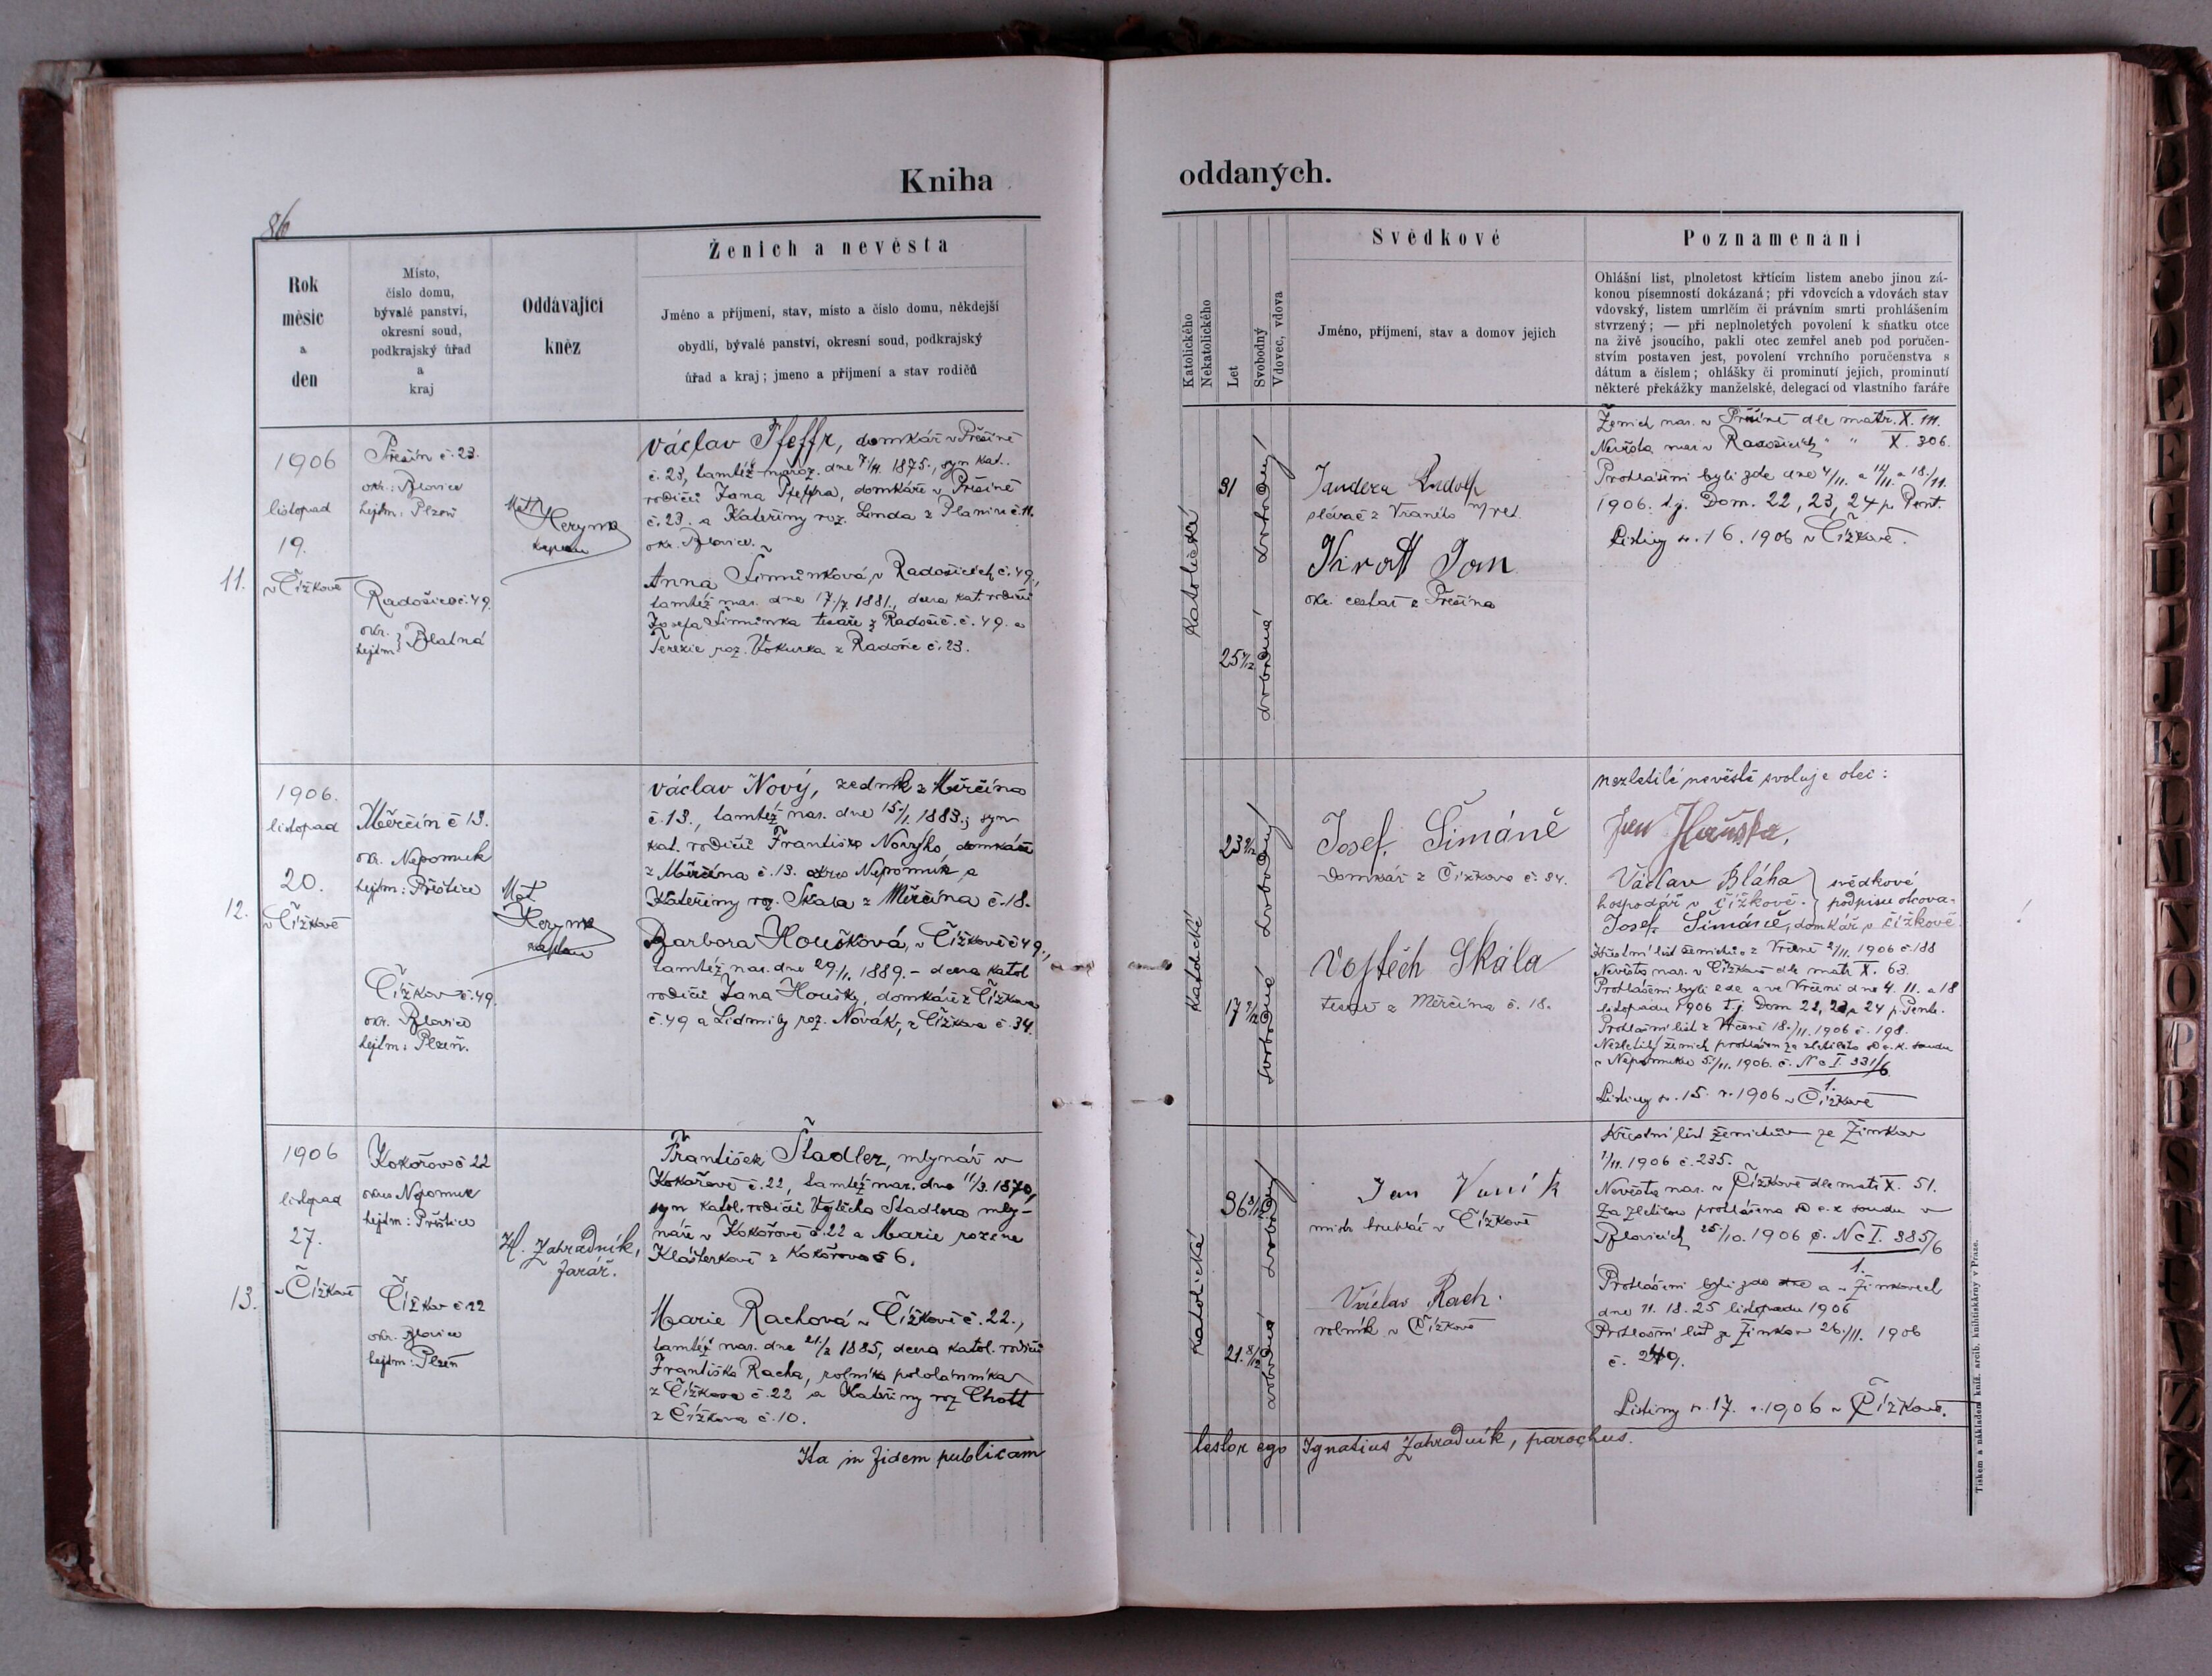 Kniha oddaných.
86
Rok
měsíc
a
den
Místo,
číslo domu,
bývalé panství,
okresní soud,
podkrajský úřad
a
kraj
Oddávající
kněz
Ženich a nevěsta
Jméno a příjmení, stav, místo a číslo domu, někdejší
obydlí, bývalé panství, okresní soud, podkrajský
úřad a kraj; jmeno a příjmení a stav rodičů
Katolického
Nekatolického
Let
Svobodný
Vdovec, vdova
Svědkové
Jméno, příjmení, stav a domov jejich
Poznamenání
Ohlášní list, plnoletost křtícím listem anebo jinou zá-
konou písemností dokázaná; při vdovcích a vdovách stav
vdovský, listem umrlčím či právním smrti prohlášením
stvrzený; — při neplnoletých povolení k sňatku otce
na živě jsoucího, pakli otec zemřel aneb pod poručen-
stvím postaven jest, povolení vrchního poručenstva s
dátum a číslem; ohlášky či prominutí jejich, prominutí
některé překážky manželské, delegací od vlastního faráře
11.
1906
listopad
19.
v Čížkově
Přešín č. 23.
okr.: Blovice
hejtm: Plzeň
Radošice č. 49.
okr.
hejtm. } Blatná
Mat.
Heryma
kaplan
Václav Pfeffr, domkář v Přešíně
č. 23, tamtéž naroz. dne 7/4. 1875., syn kat.
rodičů Jana Pfeffra, domkáře v Přešíně
č. 23. a Kateřiny roz. Linda z č. 11.
okr. Blovice.
Anna Šimůnková, v Radošicích č. 49.,
tamtéž nar. dne 17./7. 1881., dcera kat. rodičů
Josefa Šimůnka tesaře z Radošic č. 49. a
Terezie roz. Vokurka z Radošic č. 23.
Katolické
31
svobodný
25 4/12
svobodná
Jandera Rudolf
z Vraního
Jan
okr. cestař z Přešína
Ženich nar. v Přešíně dle matr. X. 111.
Nevěsta nar. v Radošicích " " X. 306.
Prohlášeni byli zde dne 4/11. a 11/11. a 18./11.
1906. t.j. Dom. 22, 23, 24 p. Pent.
Listiny n. 16. 1906 v Čížkově.
12.
1906.
listopad
20.
v Čížkově
Měrčín č 13.
okr. Nepomuk
hejtm: Přeštice
Čížkov č. 49.
okr. Blovice
hejtm: Plzeň.
Mat.
Heryma
kaplan
Václav Nový, zedník z Měrčína
č. 13., tamtéž nar. dne 15./1. 1883., syn
kat. rodičů Františka Nového, domkáře
z Měrčína č. 13. okres Nepomuk, a
Kateřiny roz. Skala z Měrčína č. 18.
Barbora Houšková, v Čížkově č 49.,
tamtéž nar. dne 29./1. 1889. - dcera katol
rodičů Jana Houšky, domkáře z Čížkova
č. 49 a Lidmily roz. Novák, z Čížkova č. 34.
Katolické
svobodný
svobodná
Josef Šimáně
domkář z Čížkova č. 84.
Vojtěch Skála
tesař z Měrčína č. 18.
nezletilé nevěstě svoluje otec:
Jan Houška.
Václav Bláha } svědkové
hospodář v Čížkově. } podpisu otcova.
Josef Šimáně, domkář v Čížkově
Křestní list ženichův z Vrčeně 2/11. 1906 č. 188
Nevěsta nar. v Čížkově dle matr. X. 63.
Prohlášeni byli zde a ve Vrčeni dne 4. 11. a 18
listopadu 1906 t.j. Dom 22, 23, 24 p. Pent.
Prohlašní list z Vrčeně 18./11. 1906 č. 198.
Nezletilý ženich prohlášen za zletilého od c.k. soudu
v Nepomuku 5./11. 1906. č. Nc I. 331/6
1.
Listiny n. 15. r. 1906 v Čížkově
13.
1906
listopad
27.
v Čížkově
Kokořov č 22
okres Nepomuk
hejtm: Přeštice
Čížkov č 22
okr. Blovice
hejtm: Plzeň
H. Zahradník,
farář.
František Štadler, mlynář v
Kokořově č. 22, tamtéž nar. dne 11/3. 1870,
syn katol. rodičů Vojtěcha Stadlera mly-
náře v Kokořově č. 22 a Marie rozené
Klášterkové z Kokořova č 6.
Marie Rachová v Čížkově č. 22.,
tamtéž nar. dne 21./2 1885, dcera katol. rodičů
Františka Racha, rolníka pololanníka
z Čížkova č. 22 a Kateřiny roz Chott
z Čížkova č. 10.
Katolické
36 8/12
svobodný
21. 8/12
svobodná
Jan Vaník
mistr truhlář v Čížkově
Václav Rach.
rolník v Čížkově
Křestní list ženichův ze Žinkov
1/11. 1906 č. 235.
Nevěsta nar. v Čížkově dle matr X. 51.
Za zletilou prohlášena od c.k soudu v
Blovicích 25/10. 1906 č. Nc I. 385/6
1.
Prohlášeni byli zde a v Žinkovech
dne 11. 18. 25 listopadu 1906
Prohlašní list ze Žinkov 26./11. 1906
č. 249.
Listiny n. 17. r. 1906 v Čížkově.
Ita in fidem publicam testor ego Ignatius Zahradník, parochus.
Tiskem a nákladem kníž. arcib. knihtiskárny v Praze.
A
B
C
D
E
F
G
H
I
J
K
L
M
N
O
P
R
S
T
U
V
Z